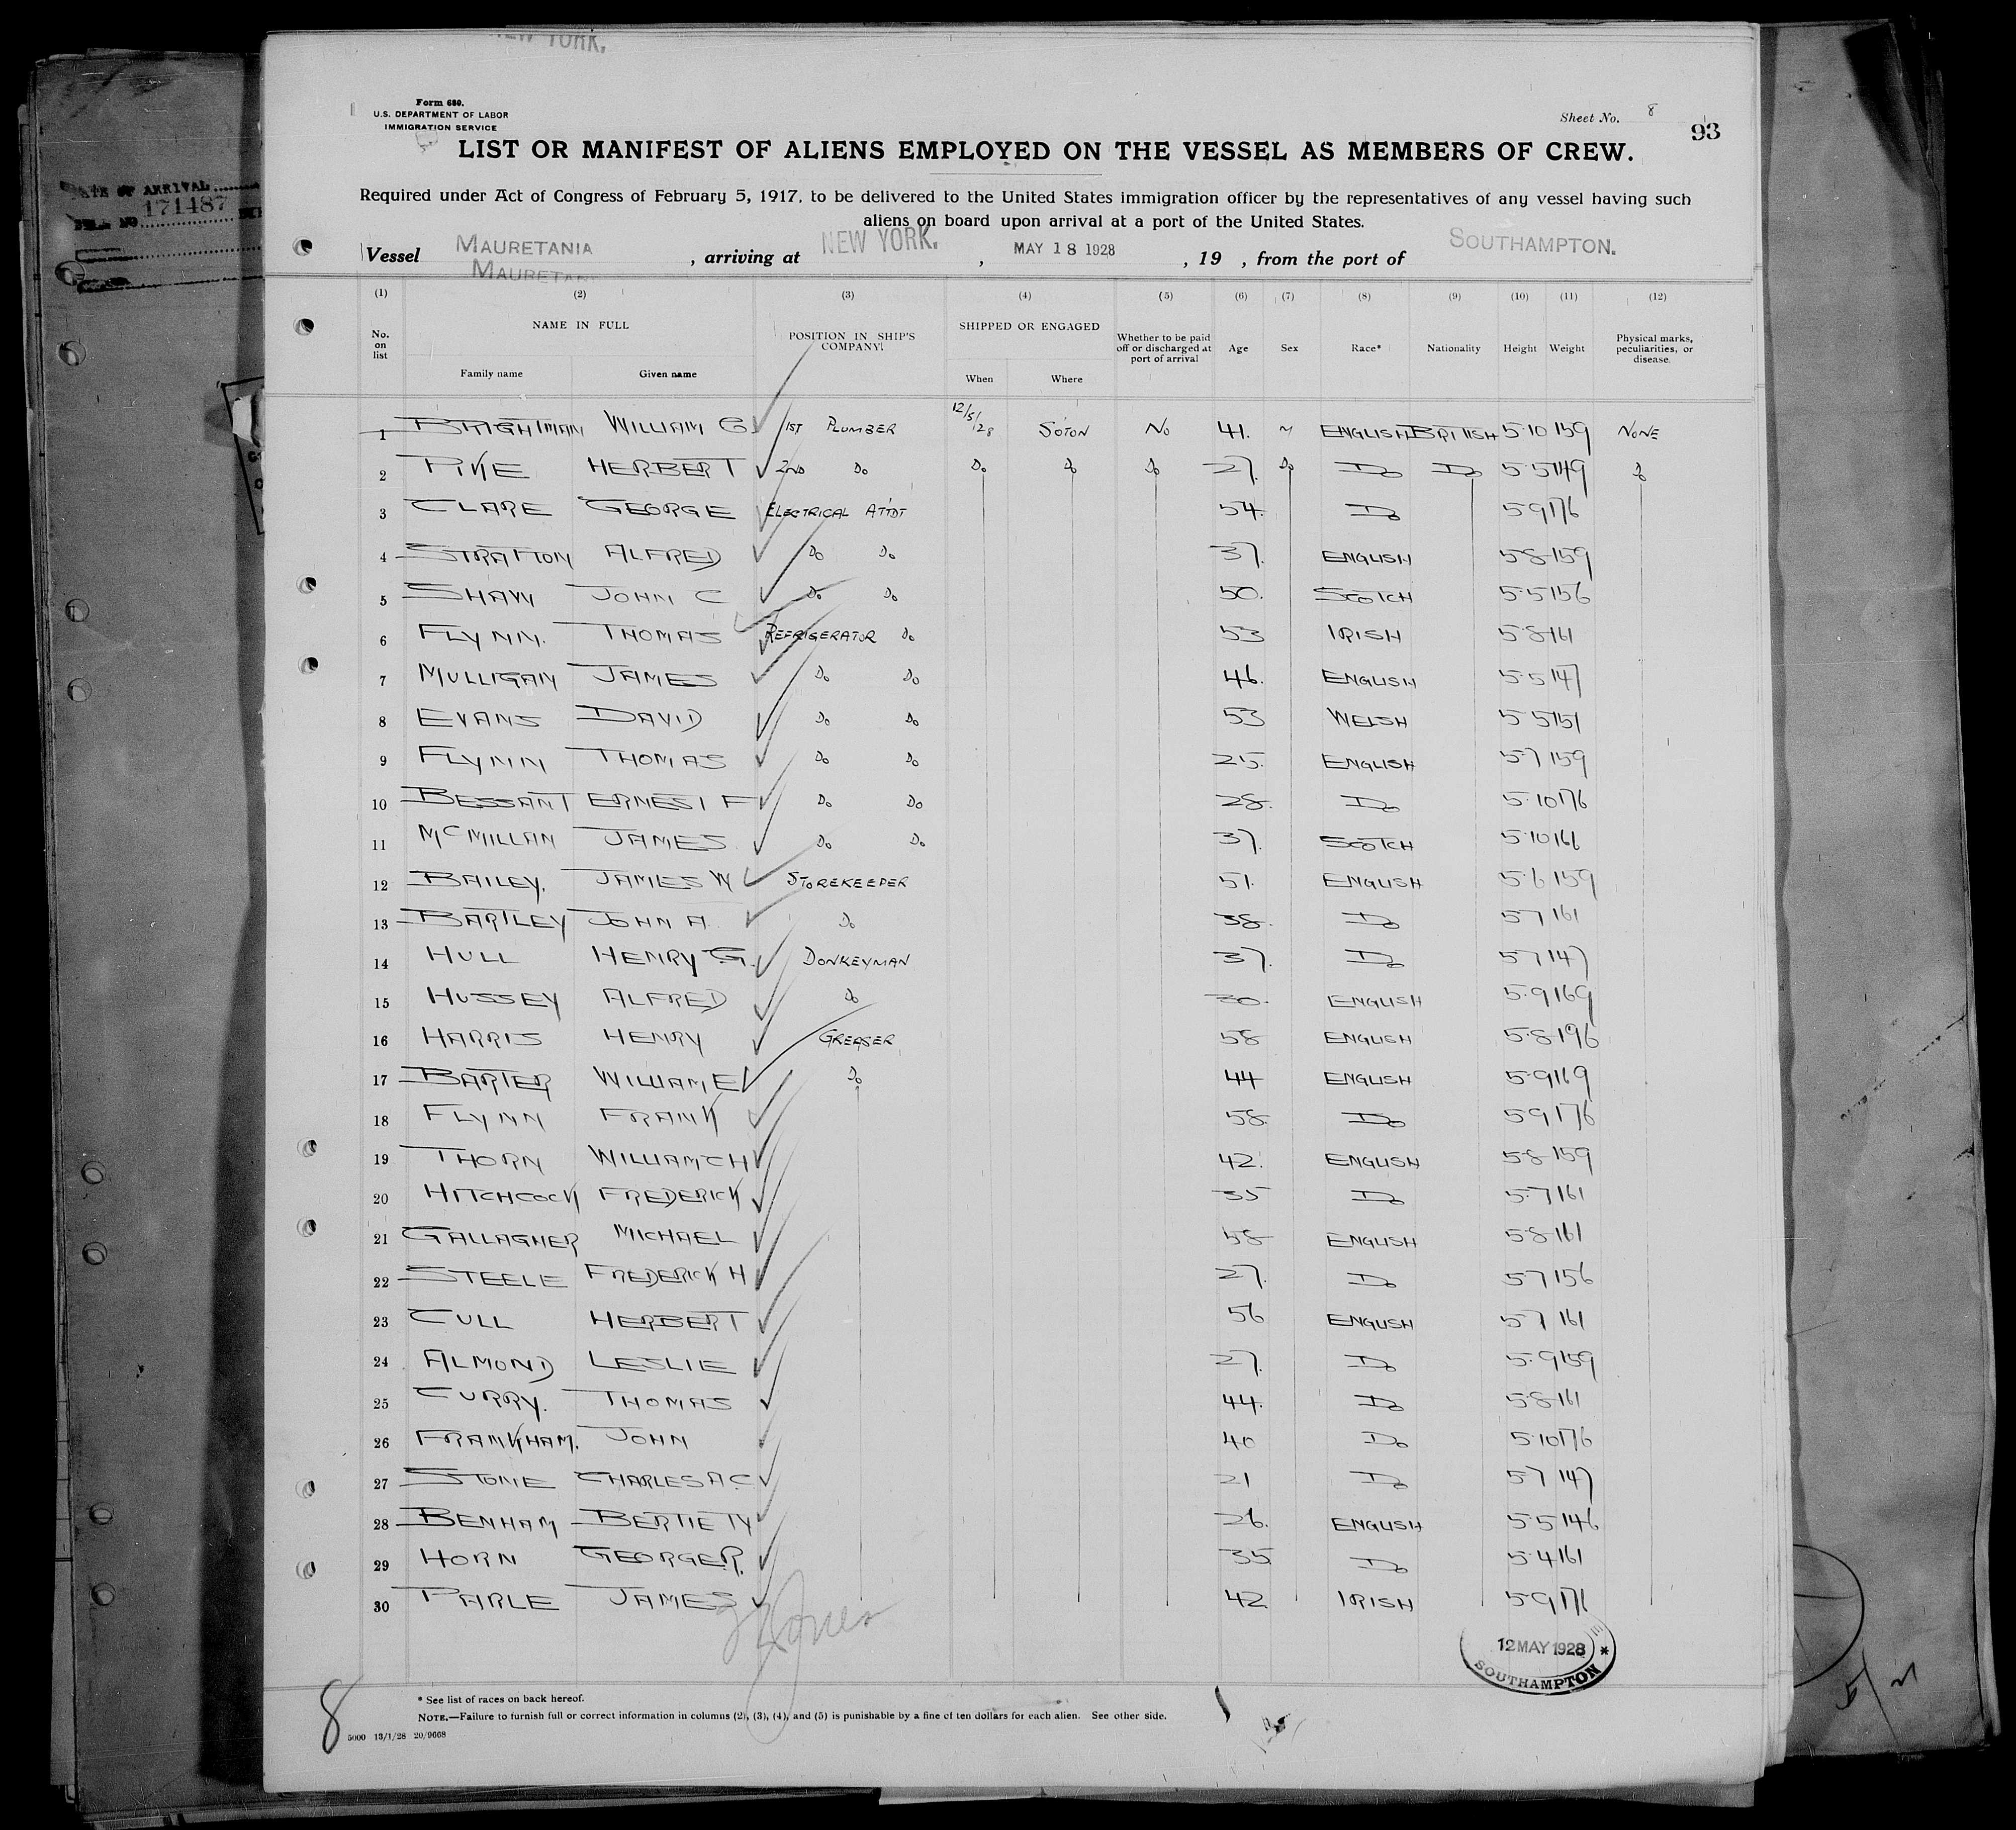 NEW YORK.
Form 680.
U.S. DEPARTMENT OF LABOR
IMMIGRATION SERVICE
Sheet No. 8
93
LIST OR MANIFEST OF ALIENS EMPLOYED ON THE VESSEL AS MEMBERS OF CREW.
Required under Act of Congress of February 5, 1917, to be delivered to the United States immigration officer by the representatives of any vessel having such
aliens on board upon arrival at a port of the United States.
DATE OF ARRIVAL
171487
Vessel MAURETANIA, arriving at NEW YORK., MAY 18 1928, 19 , from the port of SOUTHAMPTON.
MAURETAN
(1) (2) (3) (4) (5) (6) (7) (8) (9) (10) (11) (12)
No. on list NAME IN FULL POSITION IN SHIP'S COMPANY. SHIPPED OR ENGAGED Whether to be paid off or discharged at port of arrival Age Sex Race* Nationality Height Weight Physical marks, peculiarities, or disease.
Family name Given name When Where
1 BRIGHTMAN WILLIAM G 1ST PLUMBER 12/5/128 SOTON NO 41. M ENGLISH BRITISH 5·10 159 NONE
2 PIKE HERBERT 2ND DO DO DO DO 27. DO DO DO 5·5 149 DO
3 CLARE GEORGE ELECTRICAL ATTDT 54. DO 5·9 176
4 STRATTON ALFRED DO DO 37. ENGLISH 5·8 159
5 SHAW JOHN C DO DO 50. SCOTCH 5·5 156
6 FLYNN. THOMAS REFRIGERATOR DO 53 IRISH 5·8 161
7 MULLIGAN JAMES DO DO 46. ENGLISH 5·5 147
8 EVANS DAVID DO DO 53 WELSH 5·5 151
9 FLYNN THOMAS DO DO 25. ENGLISH 5·7 159
10 BESSANT ERNEST F DO DO 28. DO 5·10 176
11 MCMILLAN JAMES DO DO 37. SCOTCH 5·10 166
12 BAILEY. JAMES W STOREKEEPER 51. ENGLISH 5·6 159
13 BARTLEY JOHN A. DO 38. DO 5·7 161
14 HULL HENRY G. DONKEYMAN 37. DO 5·7 147
15 HUSSEY ALFRED DO 30. ENGLISH 5·9 169
16 HARRIS HENRY GREASER 58 ENGLISH 5·8 196
17 BARTER WILLIAM E DO 44 ENGLISH 5·9 169
18 FLYNN FRANK 58. DO 5·9 176
19 THORN WILLIAM C H 42. ENGLISH 5·8 159
20 HITCHCOCK FREDERICK 35 DO 5·7 161
21 GALLAGHER MICHAEL 58 ENGLISH 5·8 161
22 STEELE FREDERICK H 27. DO 5·7 156
23 CULL HERBERT 56 ENGLISH 5·7 161
24 ALMOND LESLIE 27. DO 5·9 159
25 CURRY. THOMAS 44. DO 5·8 161
26 FRANKHAM. JOHN 40 DO 5·10 176
27 STONE CHARLES A C 21 DO 5·7 147
28 BENHAM BERTIE W 26. ENGLISH 5·5 146
29 HORN GEORGE R. 35 DO 5·4 161
30 PARLE JAMES 42 IRISH 5·9 171
Jones
12 MAY 1928
SOUTHAMPTON
8
* See list of races on back hereof.
NOTE.—Failure to furnish full or correct information in columns (2), (3), (4), and (5) is punishable by a fine of ten dollars for each alien. See other side.
5000 13/1/28 20/9668